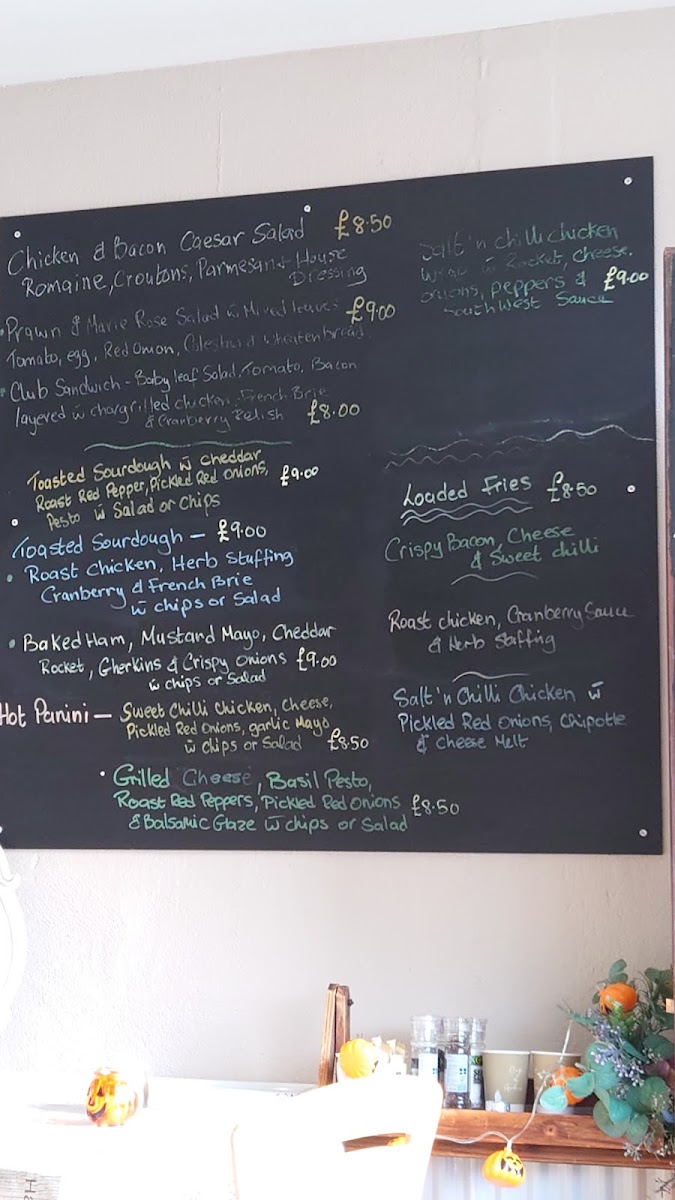 Chicken & Bacon Caesar Salad £8.50
Romaine, Croutons, Parmesan + House
Dressing
• Prawn & Marie Rose Salad w̄ Mixed leaves £9.00
Tomato, egg, Red Onion, Coleslaw & wheaten bread
• Club Sandwich - Baby leaf Salad, Tomato, Bacon
layered w̄ chargrilled chicken, French Brie
& Cranberry Relish £8.00
Toasted Sourdough w̄ cheddar
Roast Red Pepper, Pickled Red Onions, £9.00
Pesto w̄ Salad or Chips
Toasted Sourdough — £9.00
• Roast Chicken, Herb Stuffing
Cranberry & French Brie
w̄ chips or Salad
• Baked Ham, Mustard Mayo, Cheddar
Rocket, Gherkins & Crispy Onions £9.00
w̄ chips or Salad
Hot Panini — Sweet Chilli Chicken, Cheese,
Pickled Red Onions, garlic Mayo
w̄ chips or Salad £8.50
• Grilled Cheese, Basil Pesto,
Roast Red Peppers, Pickled Red Onions £8.50
& Balsamic Glaze w̄ chips or Salad
Salt 'n chilli chicken
Wrap w̄ Rocket, Cheese,
onions, peppers & £9.00
South West Sauce
Loaded Fries £8.50
Crispy Bacon, Cheese
& Sweet chilli
Roast chicken, Cranberry Sauce
& Herb Stuffing
Salt 'n Chilli Chicken w̄
Pickled Red Onions, Chipotle
& Cheese Melt